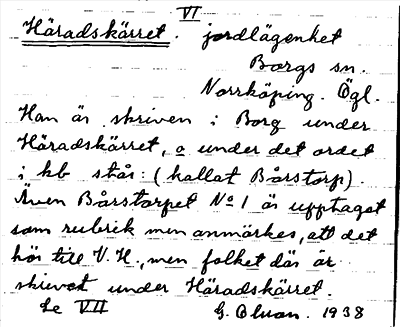 VI
Häradskärret. jordlägenhet
Borgs sn.
Norrköping. Ögl.
Han är skriven i Borg under
Häradskärret, o under det ordet
i kb står: (kallat Bårstorp).
Även Bårstorpet No 1 är upptaget
som rubrik men anmärkes, att det
hör till V.H., men folket där är
skrivet under Häradskärret.
Se VII
G. 1938